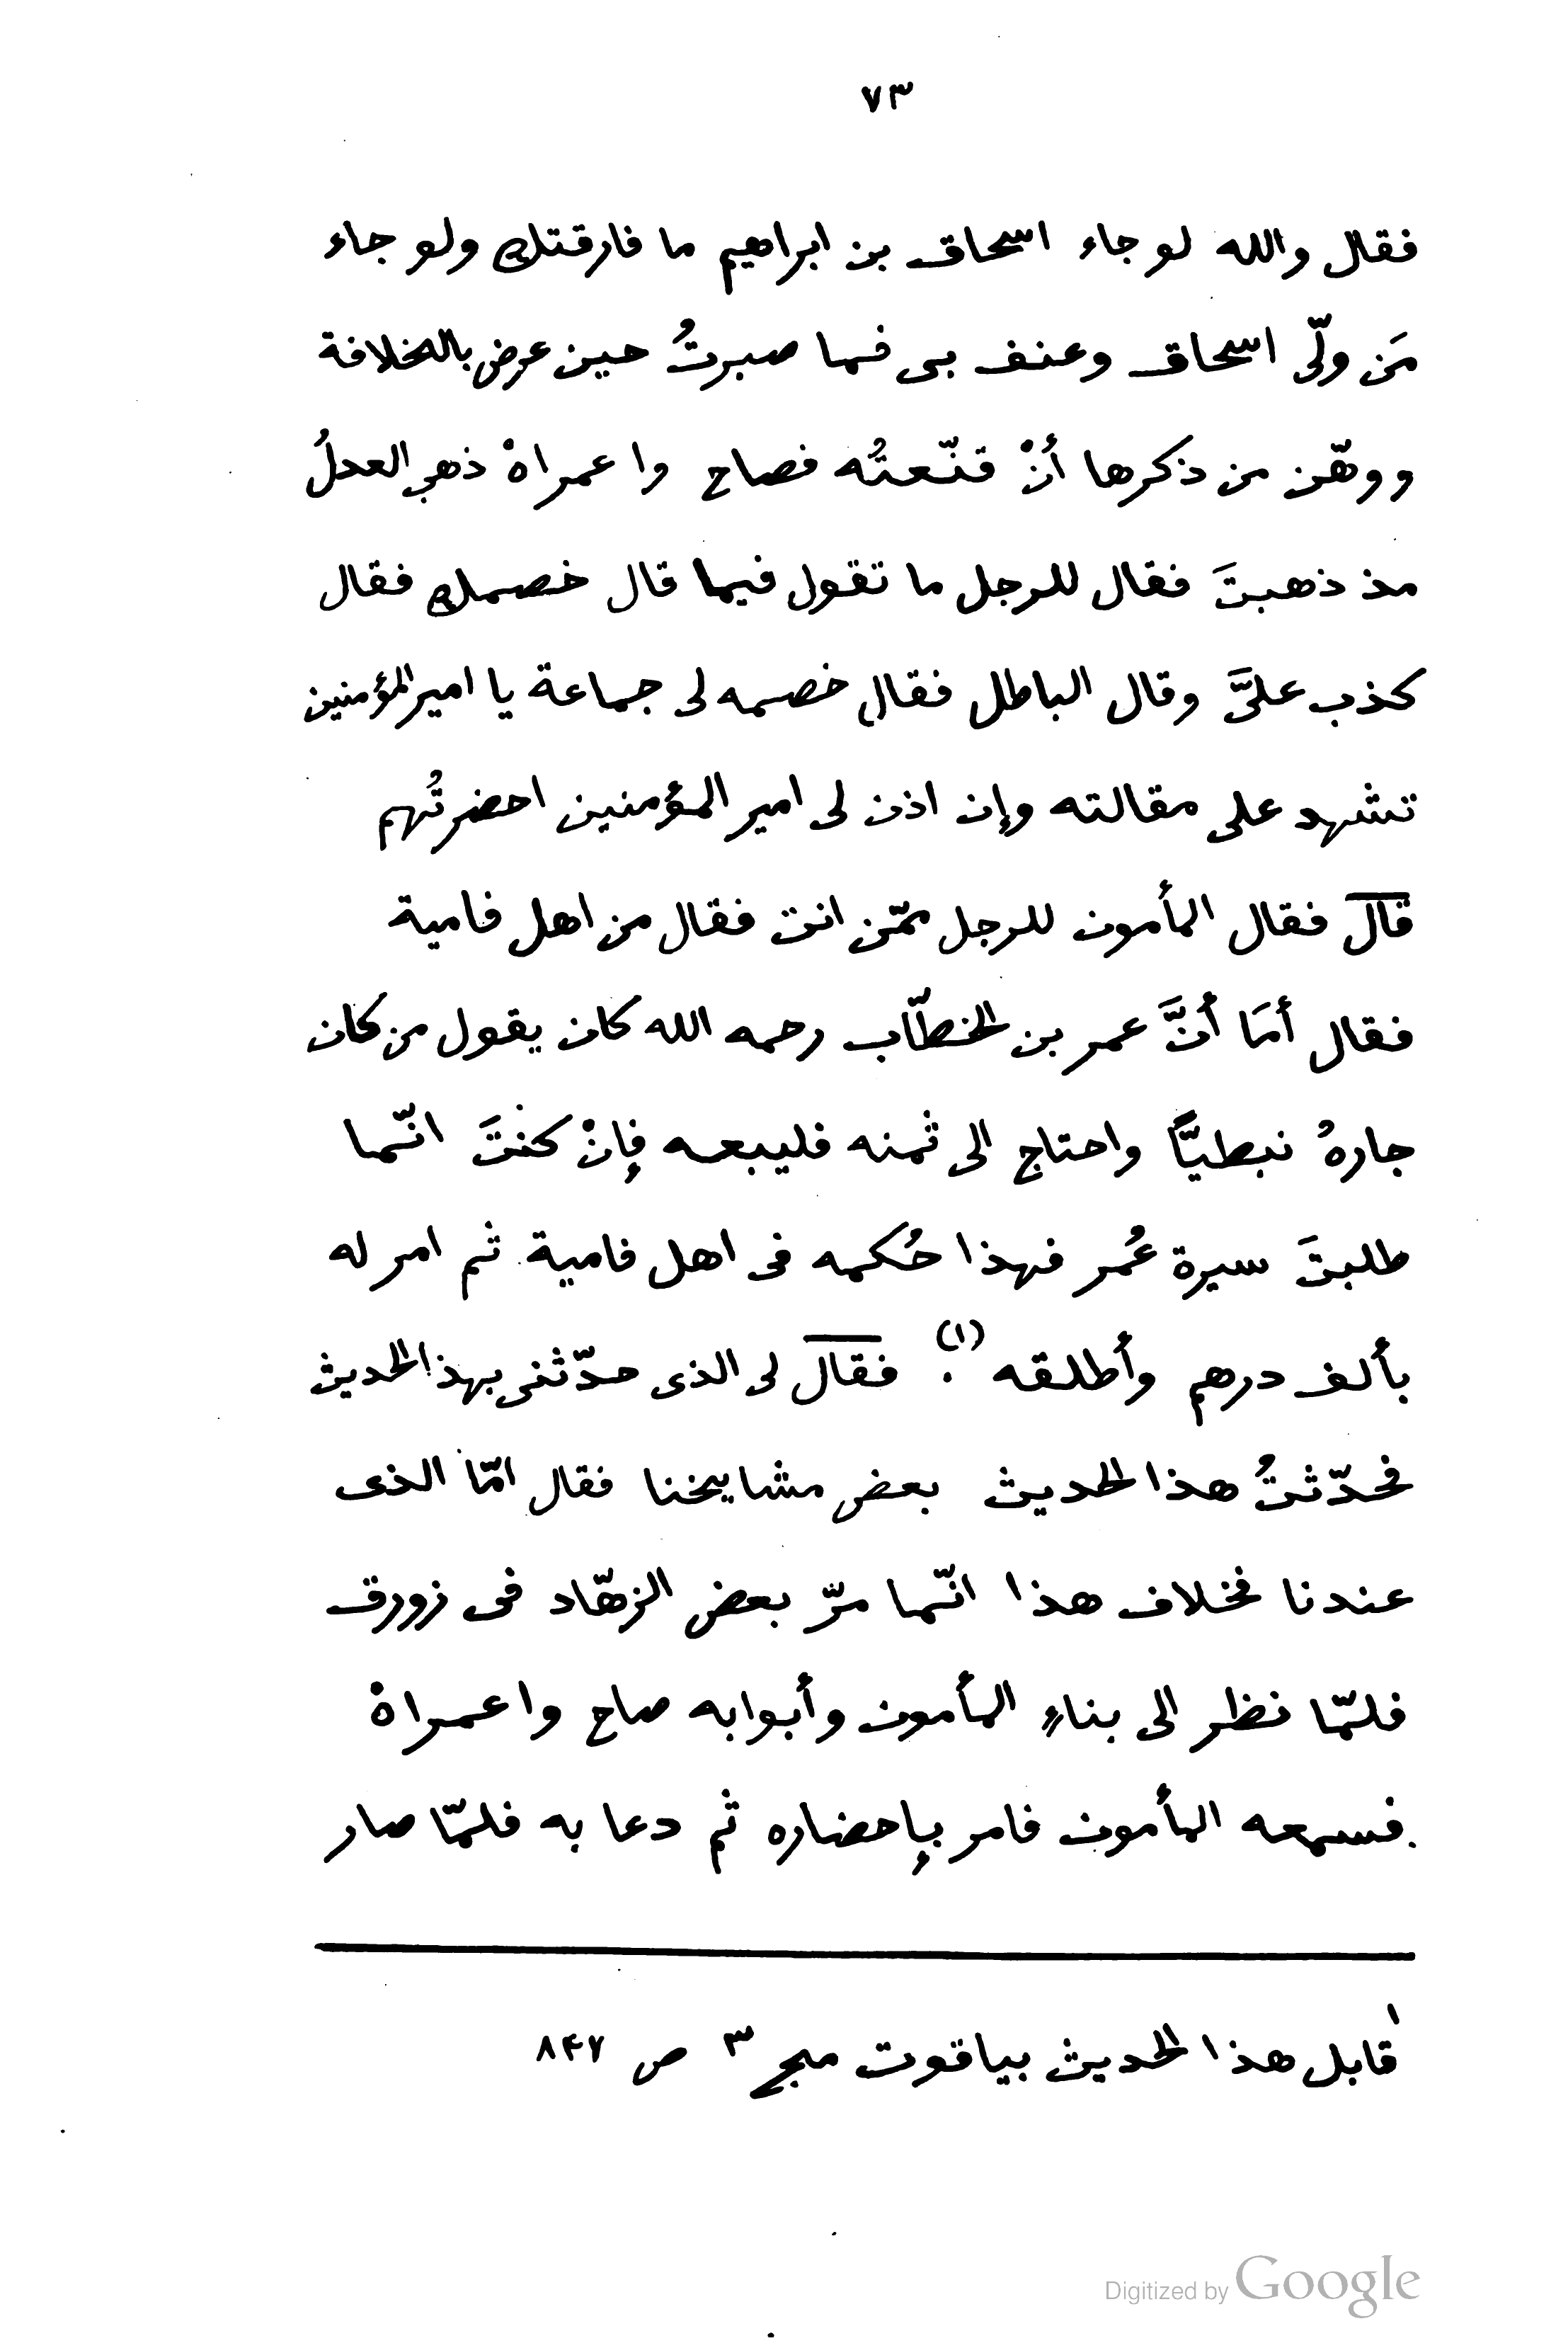 ٧٣
فقال والله لو جاء اسحاق بن ابراهيم ما فارقتك ولو جاء
مَن ولّى اسحاق وعنف بى فما صبرتُ حين عرض بالخلافة
ووهّن من ذكرها أنْ قنّعتُه فصاح وا عمراهْ ذهب العدلُ
مذ ذهبتَ فقال للرجل ما تقول فيما قال خصمك فقال
كذب علىَّ وقال الباطل فقال خصمه لى جماعة يا امير المؤمنين
تشهد على مقالته وإن اذن لى امير المؤمنين احضرتُهم
قال فقال المأمون للرجل ممّن انت فقال من اهل فامية
فقال أمَا أنَّ عمر بن الخطّاب رحمه الله كان يقول من كان
جارهُ نبطيًّا واحتاج الى ثمنه فليبعه فإنْ كنتَ انّما
طلبتَ سيرة عُمر فهذا حُكمه فى اهل فامية. ثم امر له
بألف درهم وأطلقه (١). فقال لى الذى حدّثنى بهذا الحديث
فحدّثتُ هذا الحديث بعض مشايخنا فقال امّا الذى
عندنا فخلاف هذا انّما مرّ بعض الزهّاد فى زورق
فلمّا نظر الى بناءِ المأمون وأبوابه صاح وا عمراهْ
فسمعه المأمون فامر بإحضاره ثم دعا به فلمّا صار
١ قابل هذا الحديث بياقوت مج ٣ ص ٨٤٧
Digitized by Google